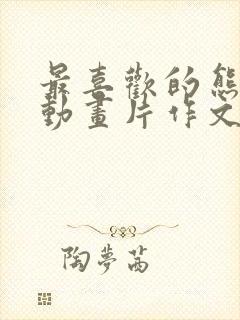 最喜歡的熊
動畫片作文
陶夢茜